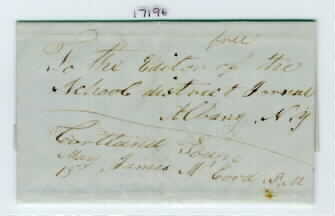 17196
free
To the Editor of the
School district Journal
Albany N.Y
Cortland Town
May
James M Cord P.M